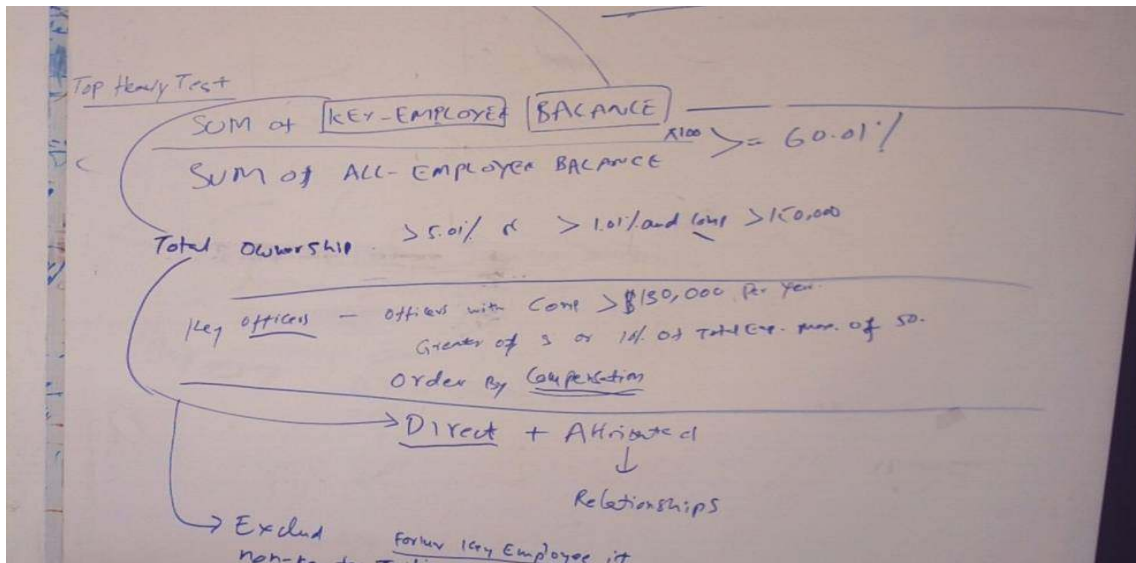 Top Heavy Test
SUM of KEY-EMPLOYEE BALANCE
SUM of ALL-EMPLOYEE BALANCE x100 >= 60.01%
Total Ownership >5.01% or >1.01% and Comp >150,000
Key officers - officers with Comp >$130,000 Per Year
Greater of 3 or 10% of Total Emp. max. of 50.
Order By Compensation
Direct + Attributed
↓
Relationships
→ Exclud Former Key Employee